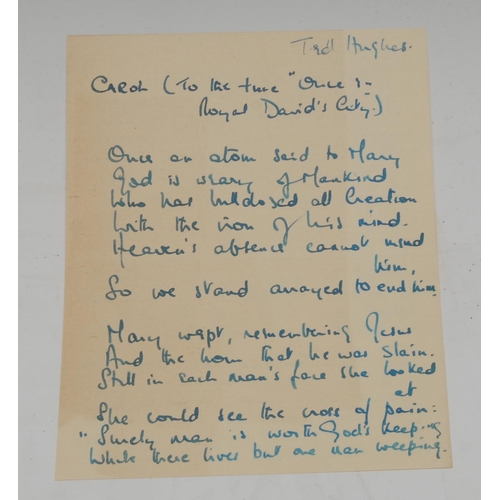 Ted Hughes.
CAROL (To the tune "Once in
Royal David's City.)
Once an atom said to Mary
God is weary of Mankind
Who has bulldozed all Creation
With the iron of his mind.
Heaven's absence cannot mind
him,
So we stand arrayed to end him.
Mary wept, remembering Jesus
And the hour that he was slain.
Still in each man's face she looked
at
She could see the cross of pain:
"Surely man is worth God's keeping
While there lives but one man weeping.